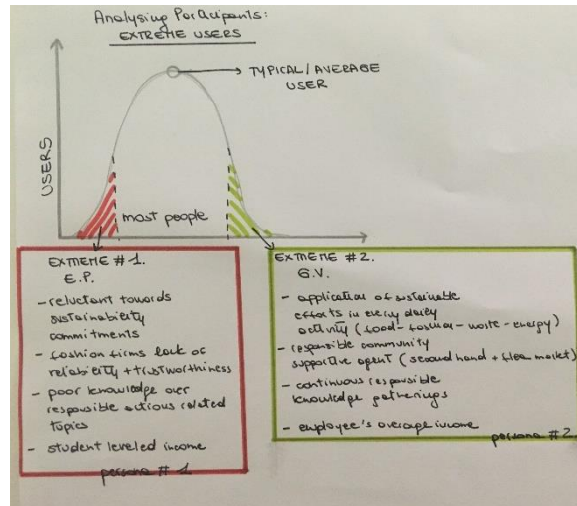 Analysing Participants:
EXTREME USERS
TYPICAL/AVERAGE
USER
USERS
most people
EXTREME #1.
E.P.
- reluctant towards
sustainability
commitments
- fashion firms lack of
reliability + trustworthiness
- poor knowledge over
responsible actions related
topics
- student leveled income
persona #1
EXTREME #2.
G.V.
- application of sustainable
efforts in every daily
activity (food - fashion - waste - energy)
- responsible community
supportive agent (second hand + flea market)
- continuous responsible
knowledge gatherings
- employee's average income
persona #2